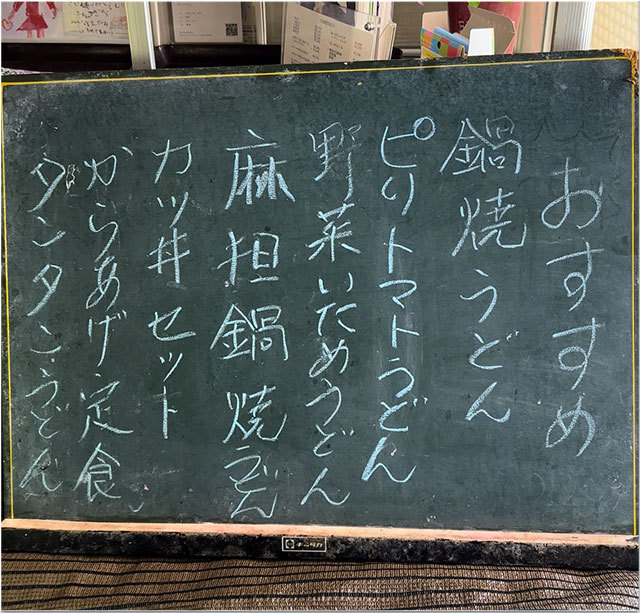 おすすめ
鍋焼うどん
ピリトマトうどん
野菜いためうどん
麻担鍋焼うどん
カツ丼セット
からあげ定食
タンタンうどん